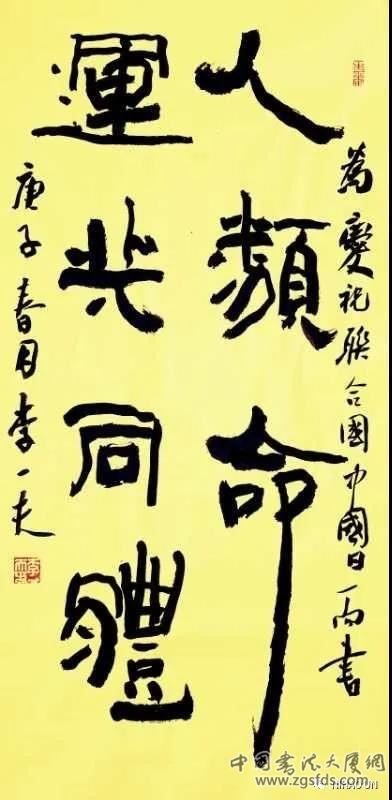 為慶祝聯合國中國日而書
人類命
運共同體
庚子春月李一夫
中國書法大厦網
www.zgsfds.com